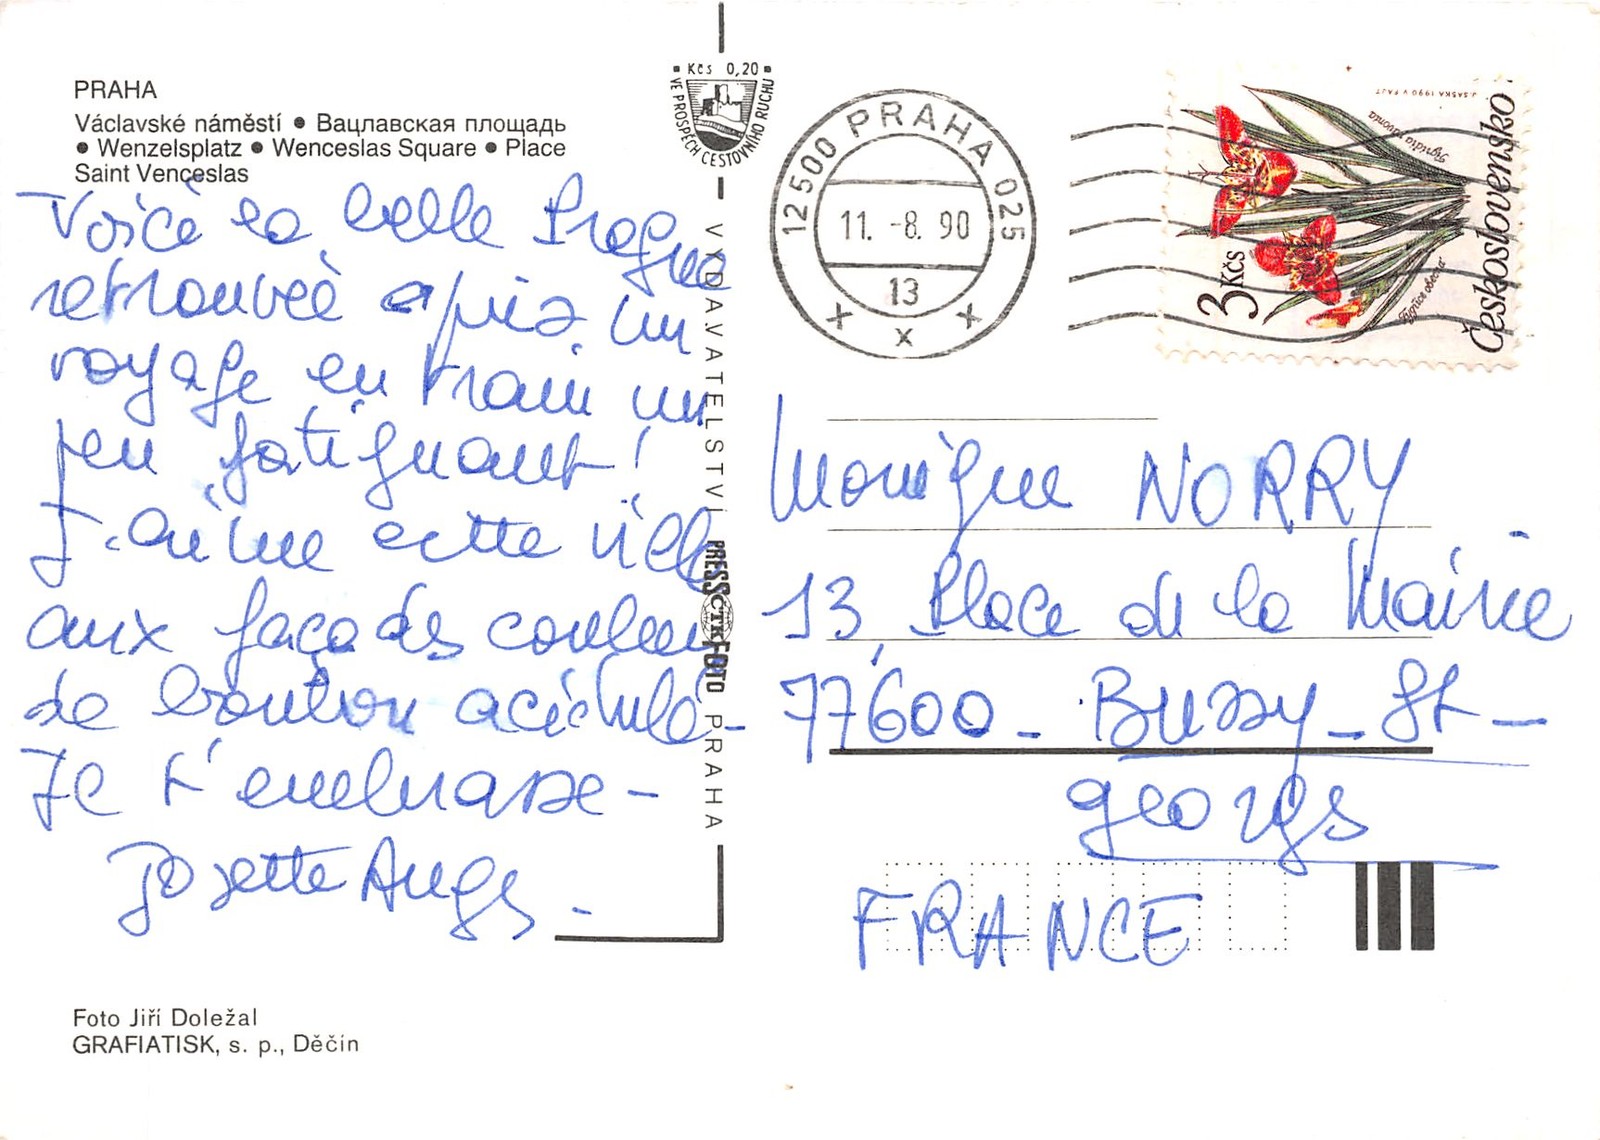 PRAHA
Václavské náměstí • Вацлавская площадь
• Wenzelsplatz • Wenceslas Square • Place
Saint Venceslas
Voici la belle Prague
retrouvée après un
voyage en train un
peu fatiguant !
J'aime cette ville
aux façades couleur
de bonbon acidulé -
Je t'embrasse -
Josette
Foto Jiří Doležal
GRAFIATISK, s. p., Děčín
Kčs 0,20
VE PROSPĚCH CESTOVNÍHO RUCHU
VYDAVATELSTVÍ PRESSFOTO PRAHA
ČTK
12500 PRAHA 025
11. -8. 90
13
x x x
Československo
3 Kčs
Tigridia pavonia
Monique NORRY
13 Place de la Mairie
77600 - Bussy - St -
georges
FRANCE